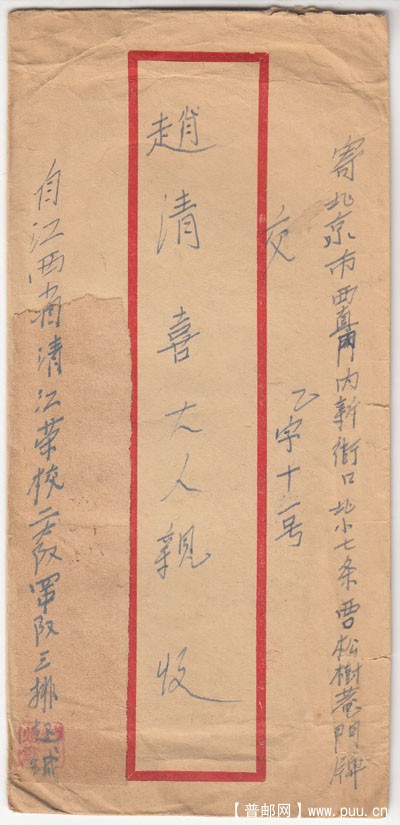 寄北京市西直門内新街口北小七条西松樹菴門牌
乙字十一号
交
趙清喜大人親收
自江西省清江荣校二大队四单队三排趙
【普邮网】www.puu.cn